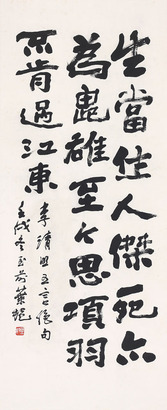 生當作人傑死亦
為鬼雄至今思項羽
不肯過江東
李清照五言絕句
壬戌冬至前葉